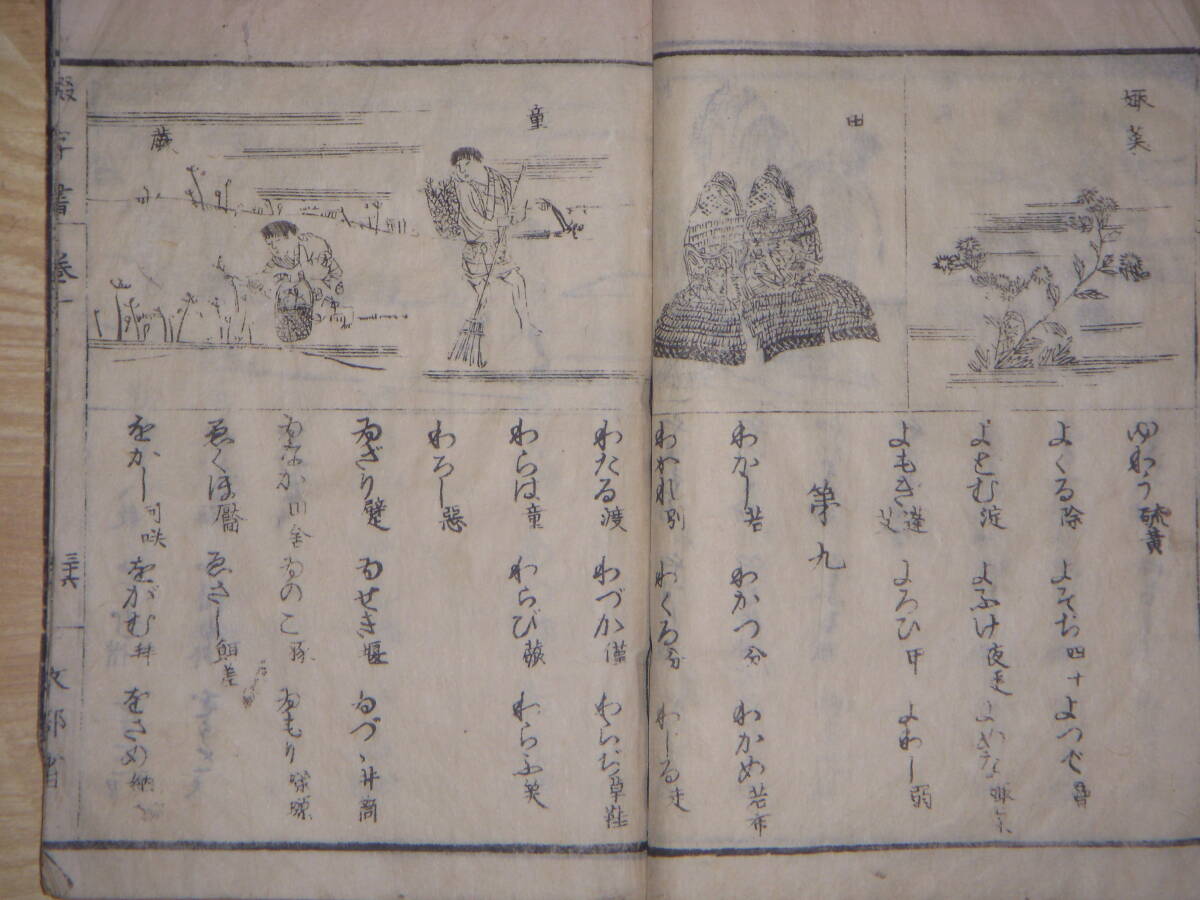 甲
ゆわう 硫黄
よくる 除 よそぢ 四十
よどむ 淀 よふけ 夜更
よもぎ 蓬 艾 よろひ 甲 よわし 弱
第九
わかし 若 わかつ 分 わかめ 若布
わかれ 別 わくる 分 わしる 走
童
蕨
わたる 渡 わづか 僅 わらぢ 草鞋
わらは 童 わらび 蕨 わらふ 笑
わろし 惡
ゐざり 躄 ゐせき 堰 ゐづゝ 井筒
ゐなか 田舍 ゐのこ 豕 ゐもり 蠑螈
ゑくぼ 靨 ゑさし 餌差
をかし 可咲 をがむ 拜 をさめ 納
綴字書 卷一
三十六
文部省